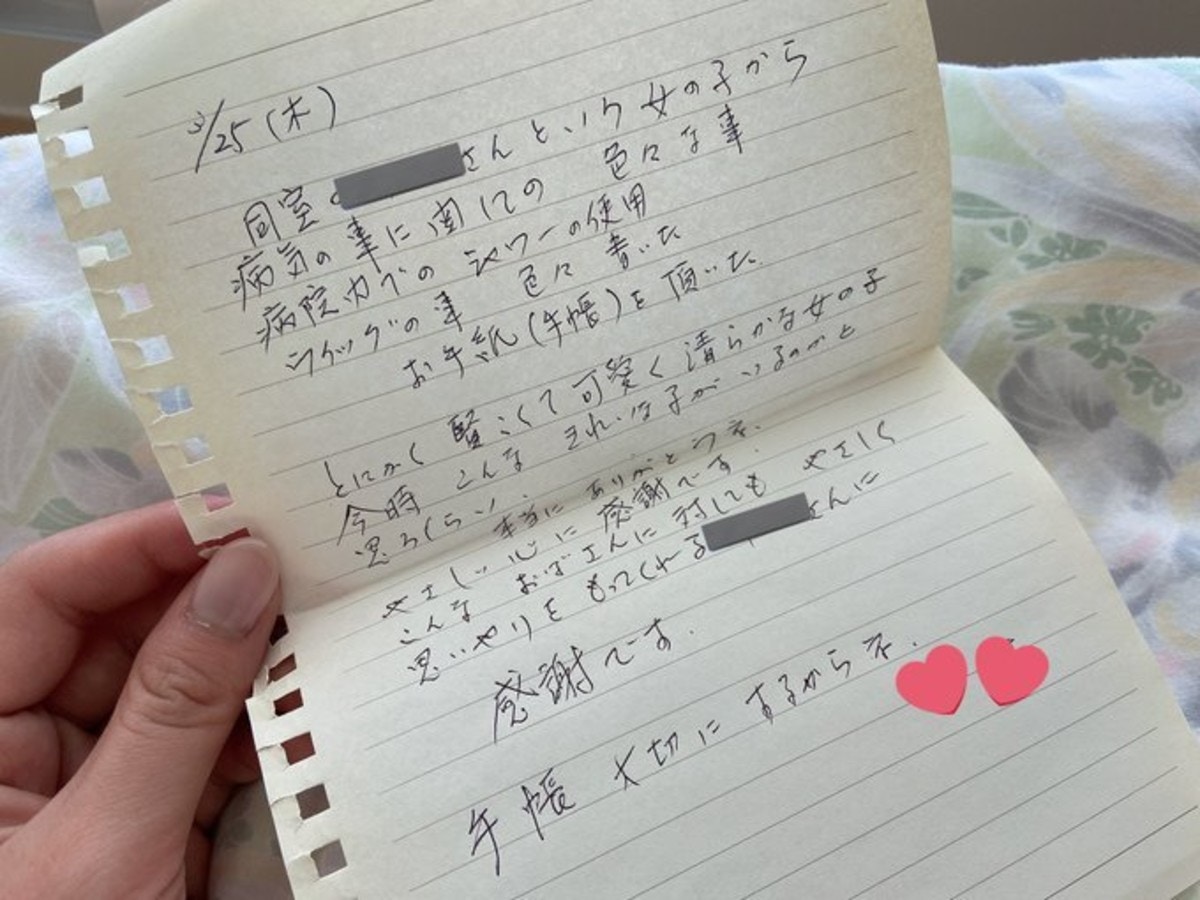 3/25(木)
同室の さんという女の子から
病気の事に関しての 色々な事
病院内でのシャワーの使用
ウイッグの事 色々 書いた
お手紙(手帳)を頂いた
とにかく 賢こくて可愛く清らかな女の子
今時 こんな きれいな子がいるのかと
思うくらい. 本当にありがとうネ.
やさしい心に感謝です.
こんな おばさんに対しても やさしく
思いやりを もってくれる さんに
感謝です.
手帳 大切にするからネ.